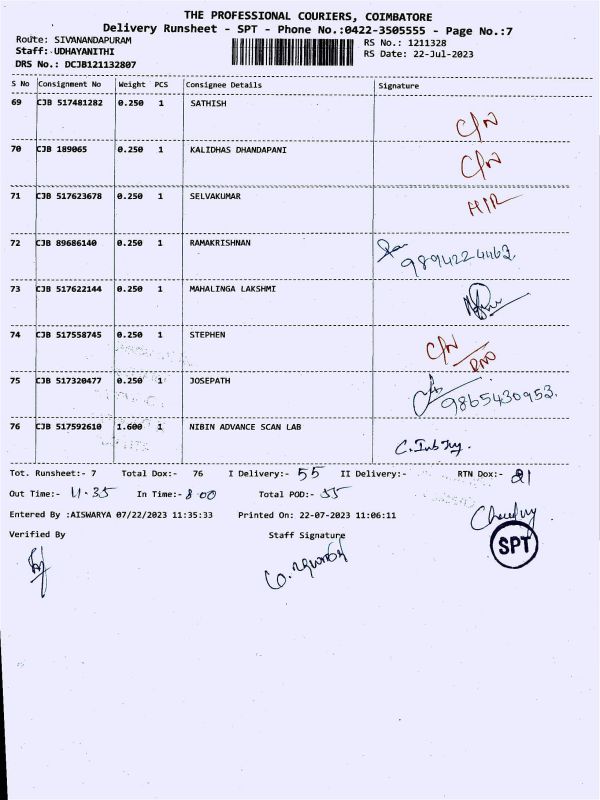 THE PROFESSIONAL COURIERS, COIMBATORE
Delivery Runsheet - SPT - Phone No.:0422-3505555 - Page No.:7
Route: SIVANANDAPURAM
RS No.: 1211328
Staff: UDHAYANITHI
RS Date: 22-Jul-2023
DRS No.: DCJB121132807
S No Consignment No Weight PCS Consignee Details Signature
69 CJB 517481282 0.250 1 SATHISH
C/N
70 CJB 189065 0.250 1 KALIDHAS DHANDAPANI
C/N
71 CJB 517623678 0.250 1 SELVAKUMAR
72 CJB 89686140 0.250 1 RAMAKRISHNAN
9894224462.
73 CJB 517622144 0.250 1 MAHALINGA LAKSHMI
74 CJB 517558745 0.250 1 STEPHEN
C/N
75 CJB 517320477 0.250 1 JOSEPATH
9865430953.
76 CJB 517592610 1.600 1 NIBIN ADVANCE SCAN LAB
Tot. Runsheet:- 7 Total Dox:- 76 I Delivery:- 55 II Delivery:- RTN Dox:- 21
Out Time:- 11.35 In Time:- 8.00 Total POD:- 55
Entered By :AISWARYA 07/22/2023 11:35:33 Printed On: 22-07-2023 11:06:11
Verified By Staff Signature
SPT